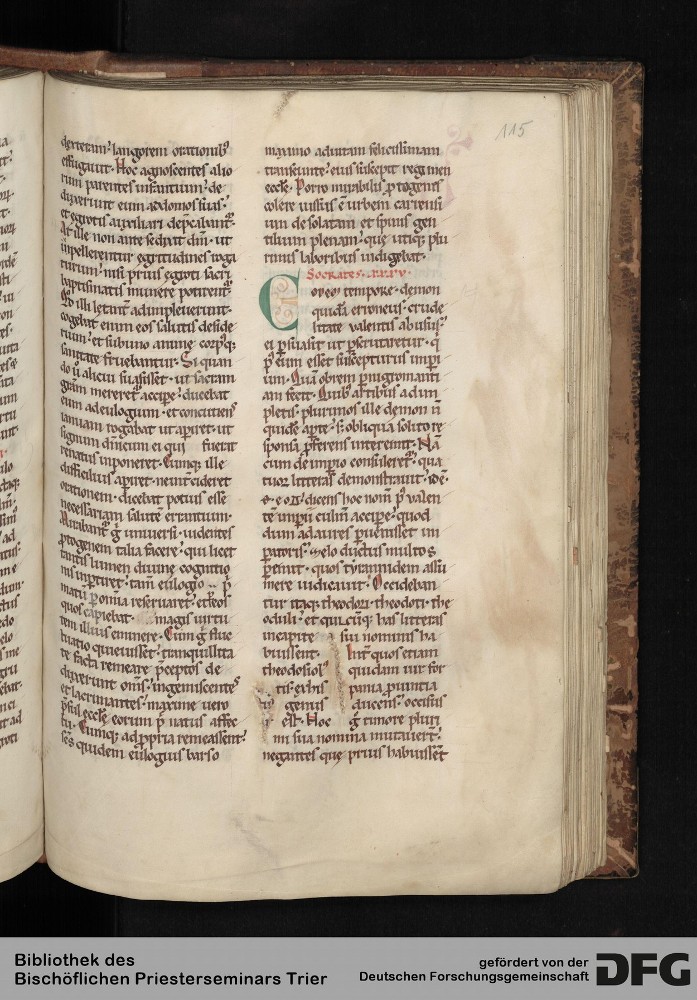 115
dexteram langorem orationibꝰ
effugiunt. Hoc agnoscentes alio
rum parentes infantium. de
duxerunt eum ad domos suas.
et egrotis auxiliari dep̄cabant᷑.
At ille non ante sedavit dm̄. ut
inpellerentur egritudines roga
turum. nisi prius egroti sacri
baptismatis munere potirent᷑.
Ad illi letant᷑ adimpleverunt.
cogebat enim eos salutis deside
rium. et subuno anime corpꝰq;
sanitate fruebantur. Si quan
do ū alicui suasisset. ut sactam
gr̄am mereret᷑ accipe. ducebat
eum ad eulogium. et concutiens
ianuam rogabat ut aperiret. ut
signum dn̄icum ei qui fuerit
renatus inponeret. Cumq; ille
difficilius apiret. ne inͭcideret
orationem. dicebat potius esse
necessariam salutē errantium.
Mirabant᷑ g̊ universi. videntes
ptogenem talia facere. qui licet
tantis lumen divine cognitio
nis inptiret. tam̄ eulogio p̄
matū p omnia reservaret. et hos
quos capiebat. magis virtu
tem illius eminere. Cum g̊ fluc
tuatio quievisset. tranquillita
te facta remeare p̄ceptos de
duxerunt om̄s. ingemiscentes
et lacrimantes. maxime vero
p̄suł eccłe eorum p̄ natus affec
tu. Cumq; ad ppria remeassent.
sēs quidem eulogius barso
maximo ad vitam felicissimam
transeunte. eius suscepit regimen
eccłe. Porro mirabilis ptogenis
colere iussus ē urbem cariensi
um desolatam et spinis gen
tilium plenam. que utiq; plu
rimis laboribus indigebat.
Socrates .xxxv.
Co
o veo tempore demon
quidā erroneus crude
litate valentis abusus.
ei psuasit ut pscrutaretur. q̇
p̄ eum esset suscepturus impi
um. Quā obrem pnigromanti
am fecit. Quibꝰ artibus adim
pletis plurimos ille demon ū
quidē apte. s; obliqua solito re
sponsa p̄ferens interemit. Nā
cum de impio consuleret᷑. qua
tuor litteras demonstravit. idē.
θ. e o δ. dicens hoc nom̄ p̄ valen
te impii culm̄ accipe. quod
dum ad aures puenisset im
patoris. zelo ductus multos
pemit. quos tyrannidem assu
mere iudicavit. Occideban
tur itaq; theodori. theodoti. the
oduli. et quicūq; has litteras
in capite sui nominis ha
buissent. Int̄ quos etiam
theodosioł quidam vir for
tis. ex his pania pvintia
genus ducens. occisus
est. Hoc g̊ timore pluri
mi sua nomina mutavert̄.
negantes que prius habuissēt
Bibliothek des
Bischöflichen Priesterseminars Trier
gefördert von der
Deutschen Forschungsgemeinschaft
DFG